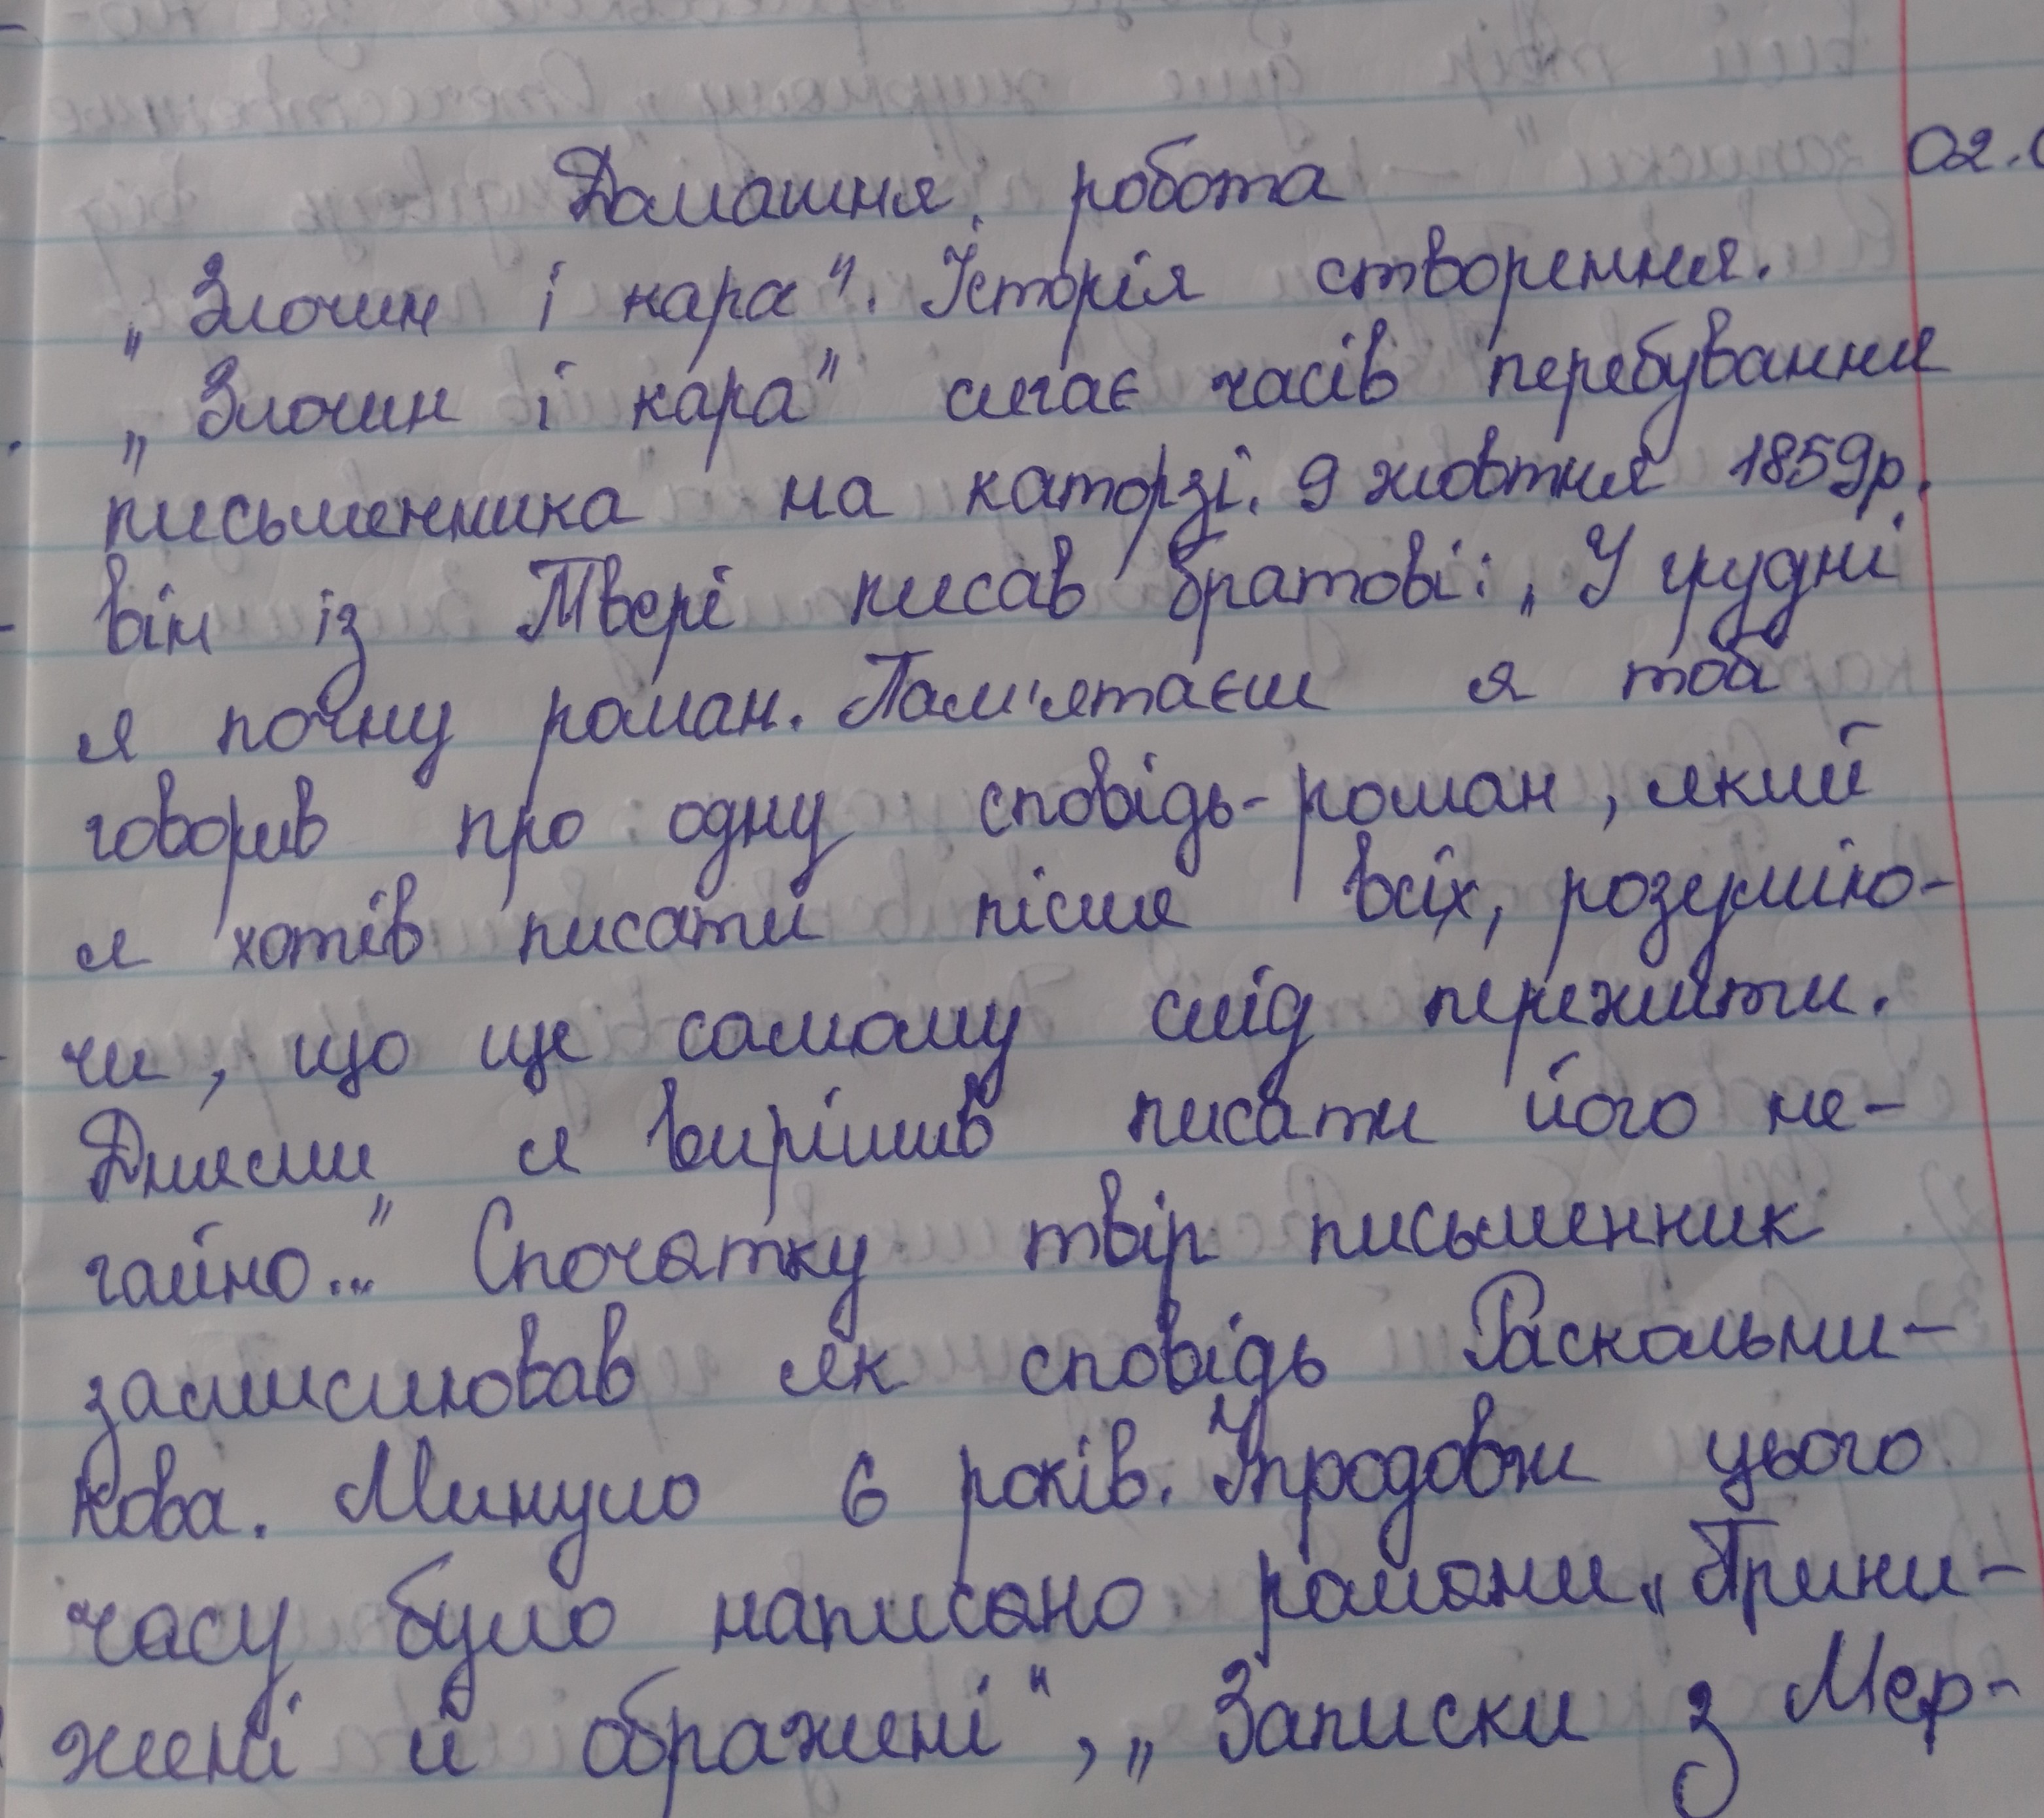 02.0
Домашня робота
„Злочин і кара". Історія створення.
„Злочин і кара" сягає часів перебування
письменника на каторзі. 9 жовтня 1859р.
він із Твері писав братові: „У грудні
я почну роман. Пам'ятаєш я тобі
говорив про одну сповідь-роман, який
я хотів писати після всіх, розумію-
чи, що ще самому слід пережити.
Днями я вирішив писати його не-
гайно..." Спочатку твір письменник
замислював як сповідь Раскольни-
кова. Минуло 6 років. Упродовж цього
часу було написано романи „Прини-
жені й ображені", „Записки з Мер-